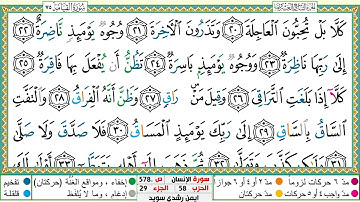 سورة القيامة ٧٥
الجزء التاسع والعشرون
كَلَّا بَلْ تُحِبُّونَ الْعَاجِلَةَ ٢٠ وَتَذَرُونَ الْآخِرَةَ ٢١ وُجُوهٌ يَوْمَئِذٍ نَّاضِرَةٌ ٢٢
إِلَىٰ رَبِّهَا نَاظِرَةٌ ٢٣ وَوُجُوهٌ يَوْمَئِذٍ بَاسِرَةٌ ٢٤ تَظُنُّ أَن يُفْعَلَ بِهَا فَاقِرَةٌ ٢٥
كَلَّا إِذَا بَلَغَتِ التَّرَاقِيَ ٢٦ وَقِيلَ مَنْ ۜ رَاقٍ ٢٧ وَظَنَّ أَنَّهُ الْفِرَاقُ ٢٨ وَالْتَفَّتِ
السَّاقُ بِالسَّاقِ ٢٩ إِلَىٰ رَبِّكَ يَوْمَئِذٍ الْمَسَاقُ ٣٠ فَلَا صَدَّقَ وَلَا صَلَّىٰ
مد ٦ حركات لزوما
مد ٢ أو ٤ أو ٦ جوازا
إخفاء ، ومواقع الغنة (حركتان)
تفخيم
مد واجب ٤ أو ٥ حركات
مد حركتان
إدغام ، وما لا يلفظ
قلقلة
سورة الإنسان
ص 578.
الحزب 58
الجزء 29
ايمن رشدي سويد